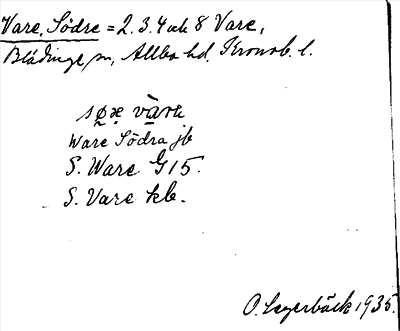 Vare, Södre = 2. 3. 4 och 8 Vare,
Blädinge sn, Allbo hd. Kronob. l.
sø̱æ vàrɐ
Ware Södra jb
S. Ware G 15.
S. Vare kb.
O. Lagerbäck 1935.